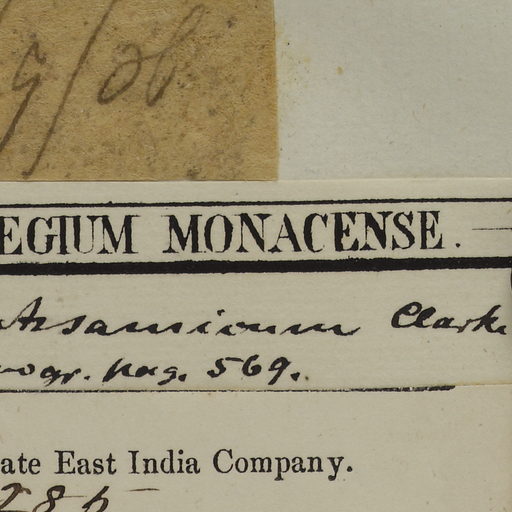 EGIUM MONACENSE.
Assamicum Clarke
ogr. pag. 569.
ate East India Company.